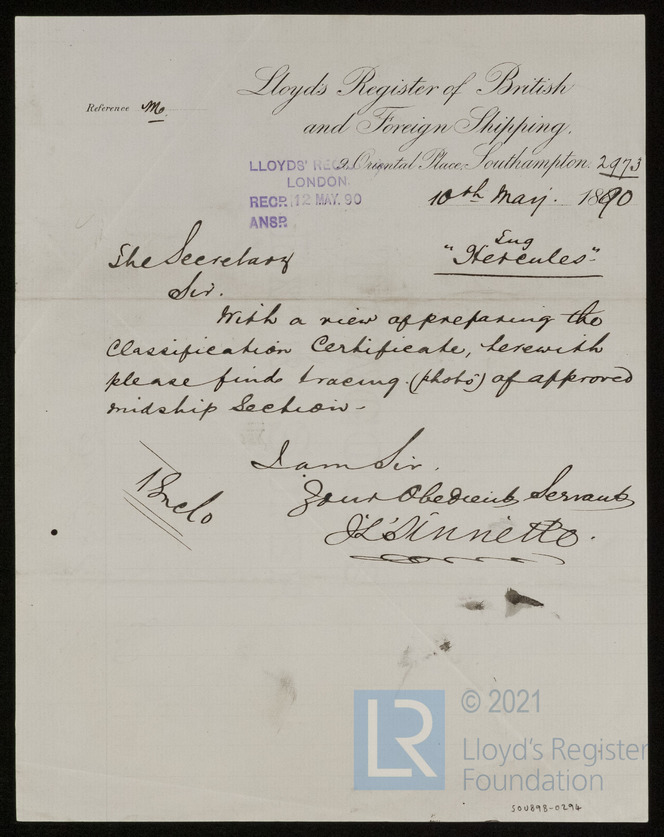 Lloyd's Register of British
and Foreign Shipping.
Reference M
2, Oriental Place, Southampton. 2973
LLOYDS' REG
LONDON.
RECP. 12 MAY. 90
ANSR
10th May. 1890
The Secretary
Tug
"Hercules"
Sir.
With a view of preparing the
Classification Certificate, herewith
please find tracing (photo) of approved
midship Section -
I am Sir.
Your Obedient Servant
1 Enclo
© 2021
LR
Lloyd's Register
Foundation
SOU898-0294